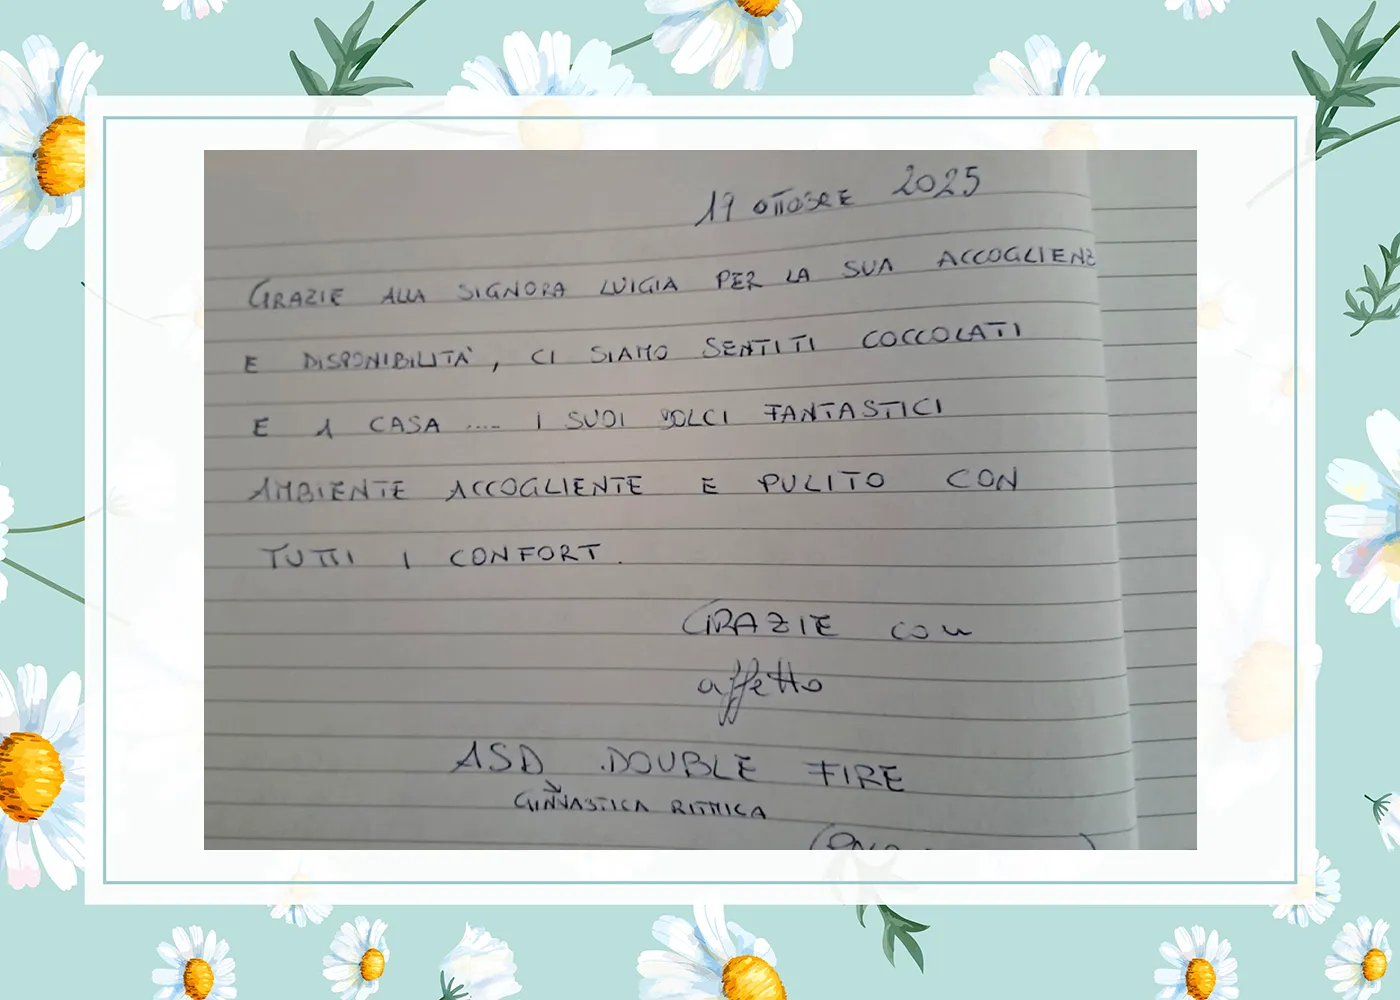 19 OTTOBRE 2025
GRAZIE ALLA SIGNORA LUIGIA PER LA SUA ACCOGLIENZ
E DISPONIBILITÀ, CI SIAMO SENTITI COCCOLATI
E A CASA .... I SUOI DOLCI FANTASTICI
AMBIENTE ACCOGLIENTE E PULITO CON
TUTTI I CONFORT.
GRAZIE con
affetto
ASD DOUBLE FIRE
GINNASTICA RITMICA